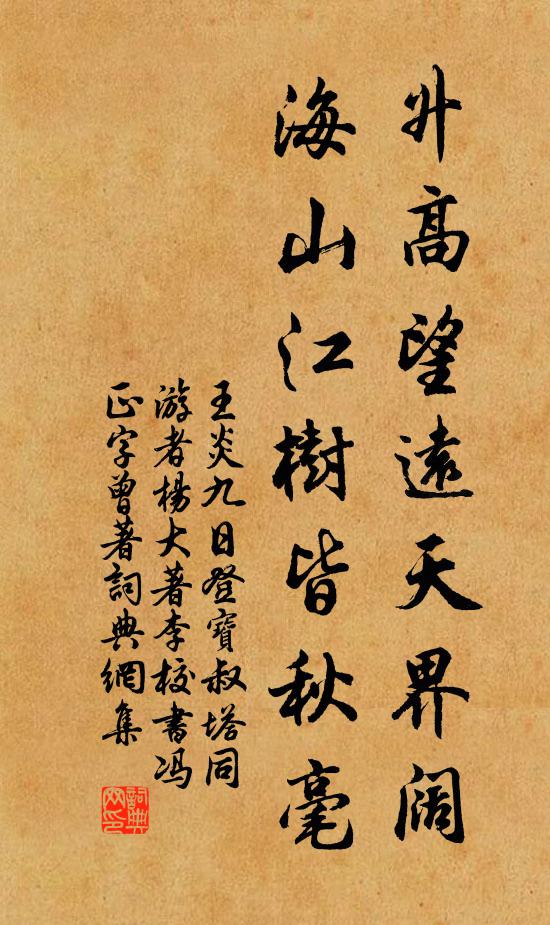 升高望遠天界闊
海山江樹皆秋毫
王炎九日登寶叔塔同
游者楊大著李校書馮
正字曾著詞典網集
詞典
网印